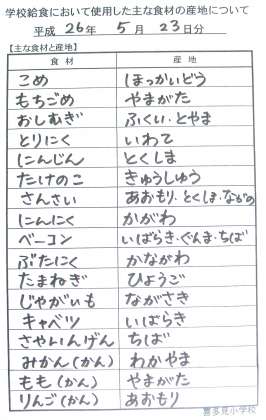 学校給食において使用した主な食材の産地について
平成 26年 5月 23日分
【主な食材と産地】
食材 産地
こめ ほっかいどう
もちごめ やまがた
おしむぎ ふくい・とやま
とりにく いわて
にんじん とくしま
たけのこ きゅうしゅう
さんさい あおもり・とくしま・ながの
にんにく かがわ
ベーコン いばらき・ぐんま・ちば
ぶたにく かながわ
たまねぎ ひょうご
じゃがいも ながさき
キャベツ いばらき
さやいんげん ちば
みかん(かん) わかやま
もも(かん) やまがた
りんご(かん) あおもり
喜多見小学校